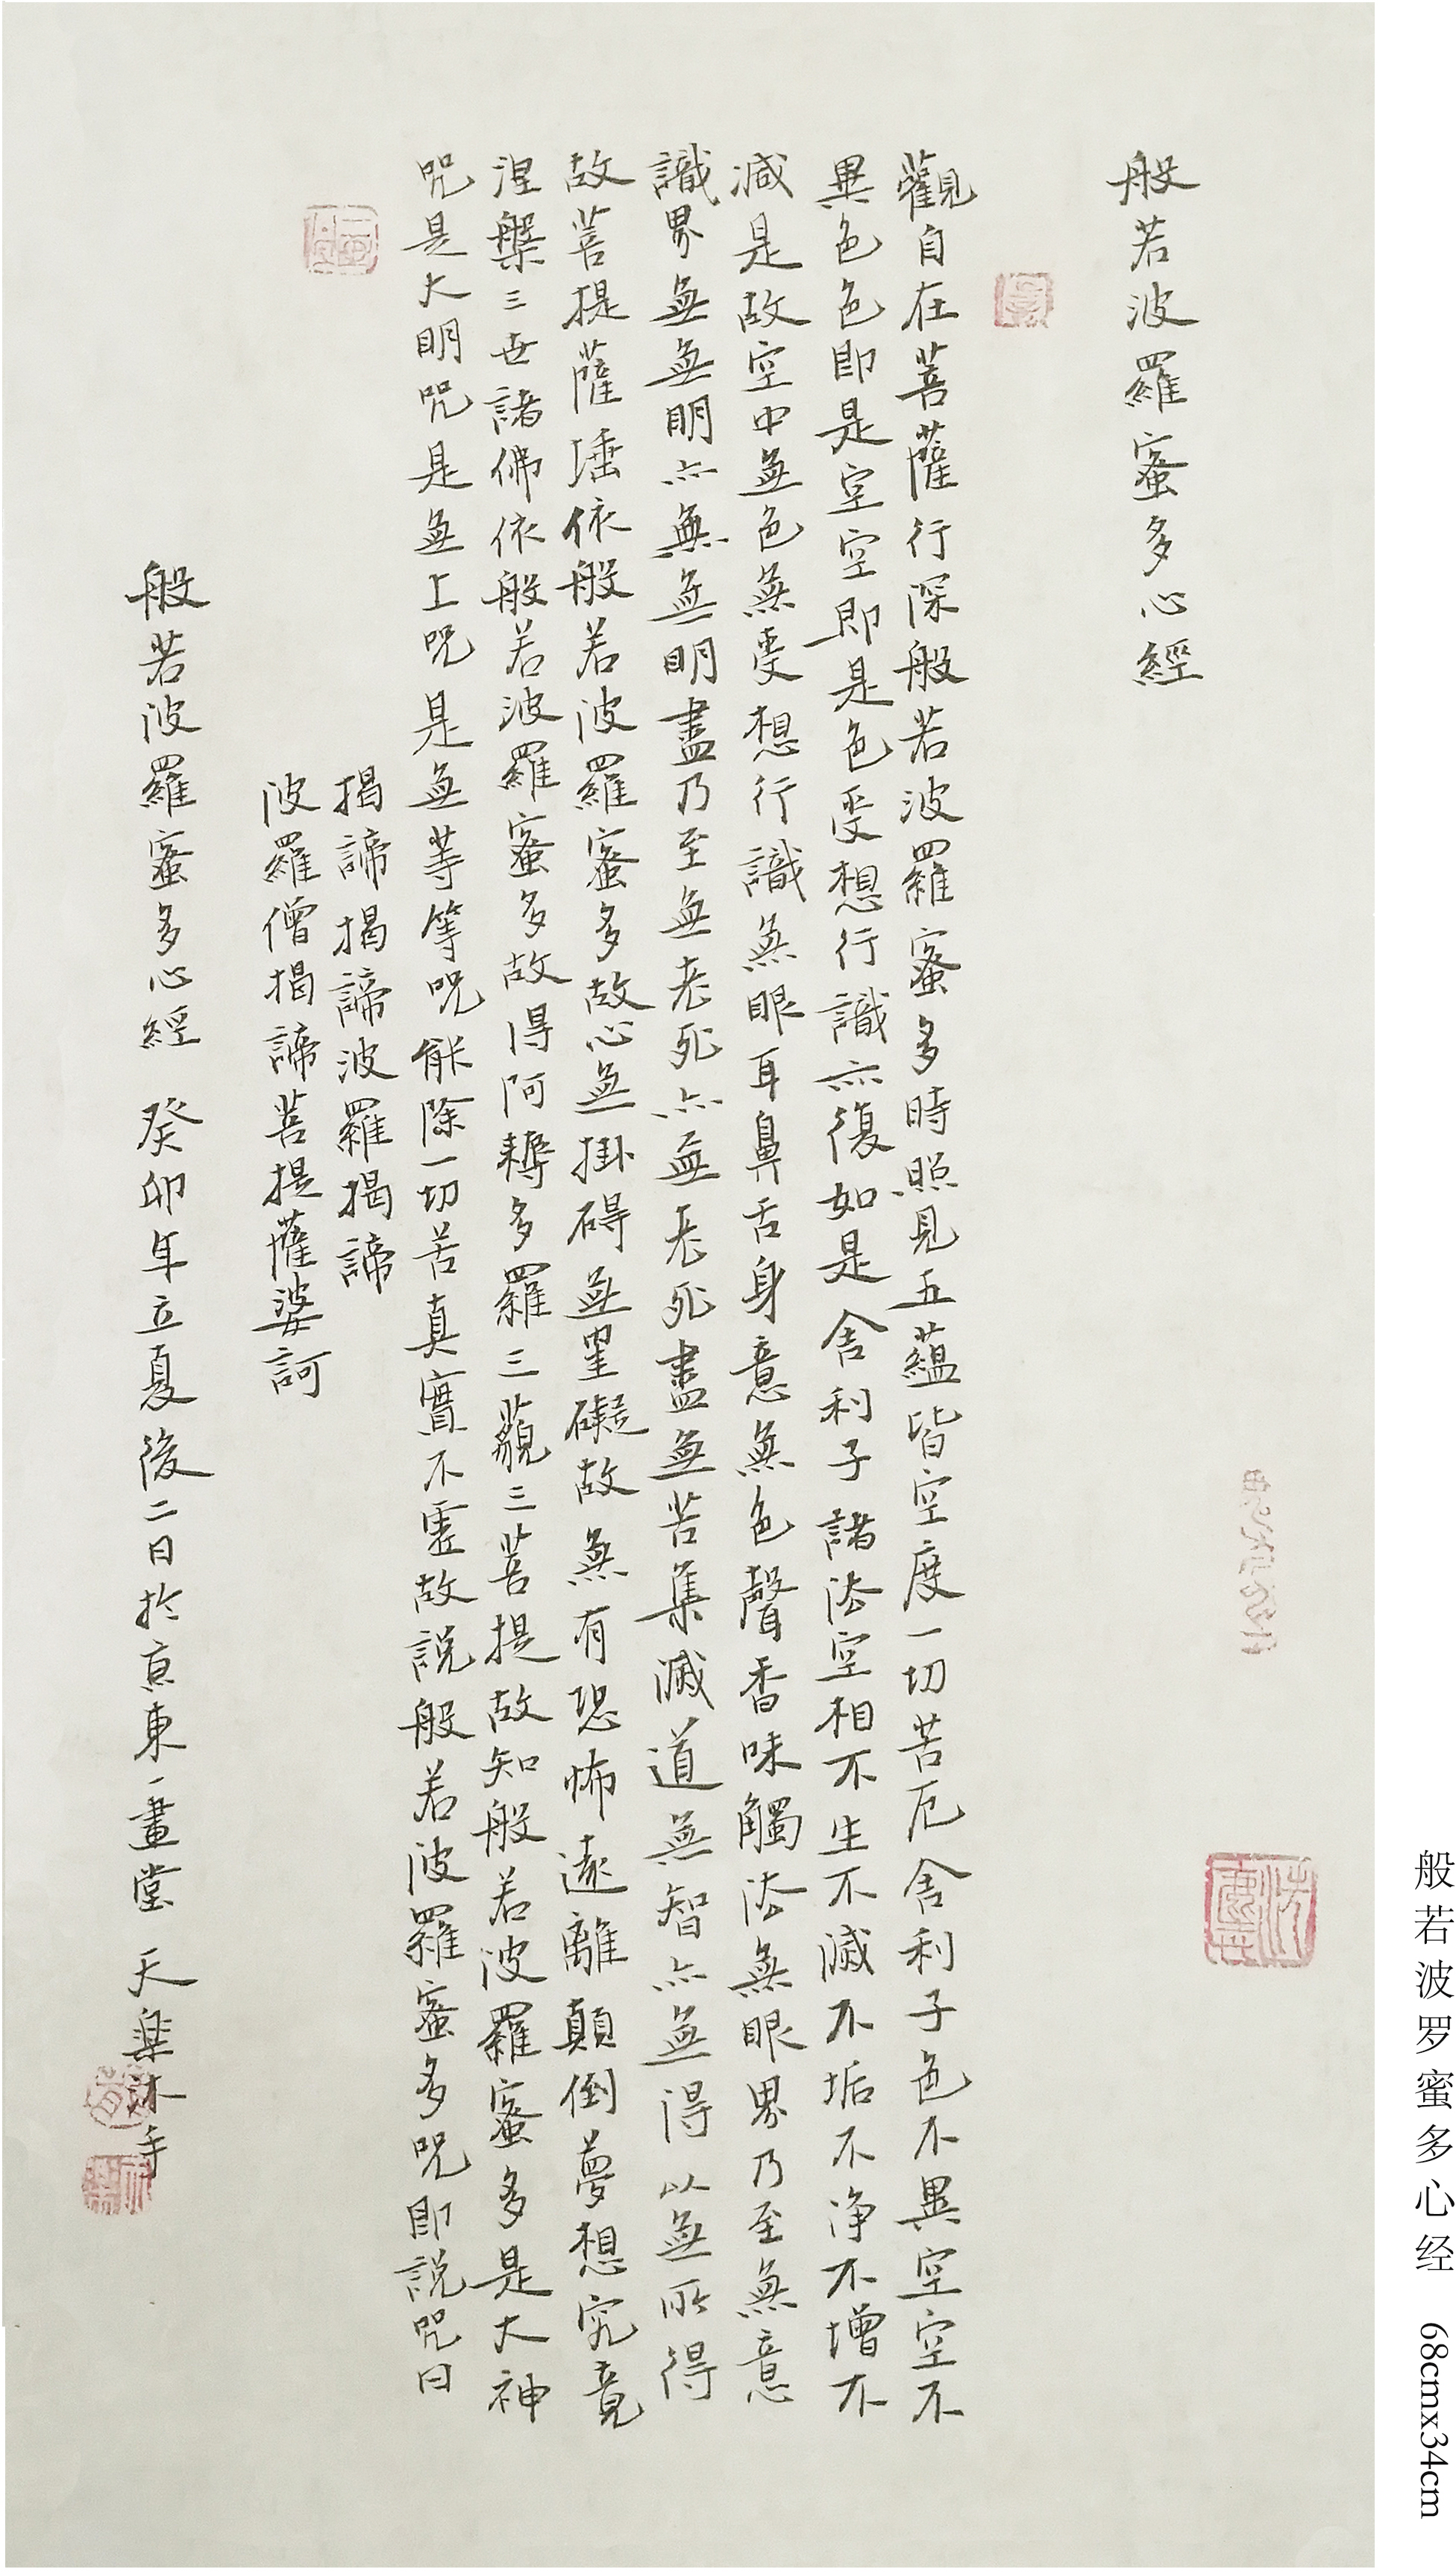 般若波羅蜜多心經
觀自在菩薩行深般若波羅蜜多時照見五蘊皆空度一切苦厄舍利子色不異空空不
異色色即是空空即是色受想行識亦復如是舍利子諸法空相不生不滅不垢不淨不增不
減是故空中無色無受想行識無眼耳鼻舌身意無色聲香味觸法無眼界乃至無意
識界無無明亦無無明盡乃至無老死亦無老死盡無苦集滅道無智亦無得以無所得
故菩提薩埵依般若波羅蜜多故心無掛碍無罣礙故無有恐怖遠離顛倒夢想究竟
涅槃三世諸佛依般若波羅蜜多故得阿耨多羅三藐三菩提故知般若波羅蜜多是大神
咒是大明咒是無上咒是無等等咒能除一切苦真實不虛故說般若波羅蜜多咒即說咒曰
揭諦揭諦波羅揭諦
波羅僧揭諦菩提薩婆訶
般若波羅蜜多心經 癸卯年立夏後二日於京東一畫堂 天樂沐手
般若波罗蜜多心经 68cmx34cm